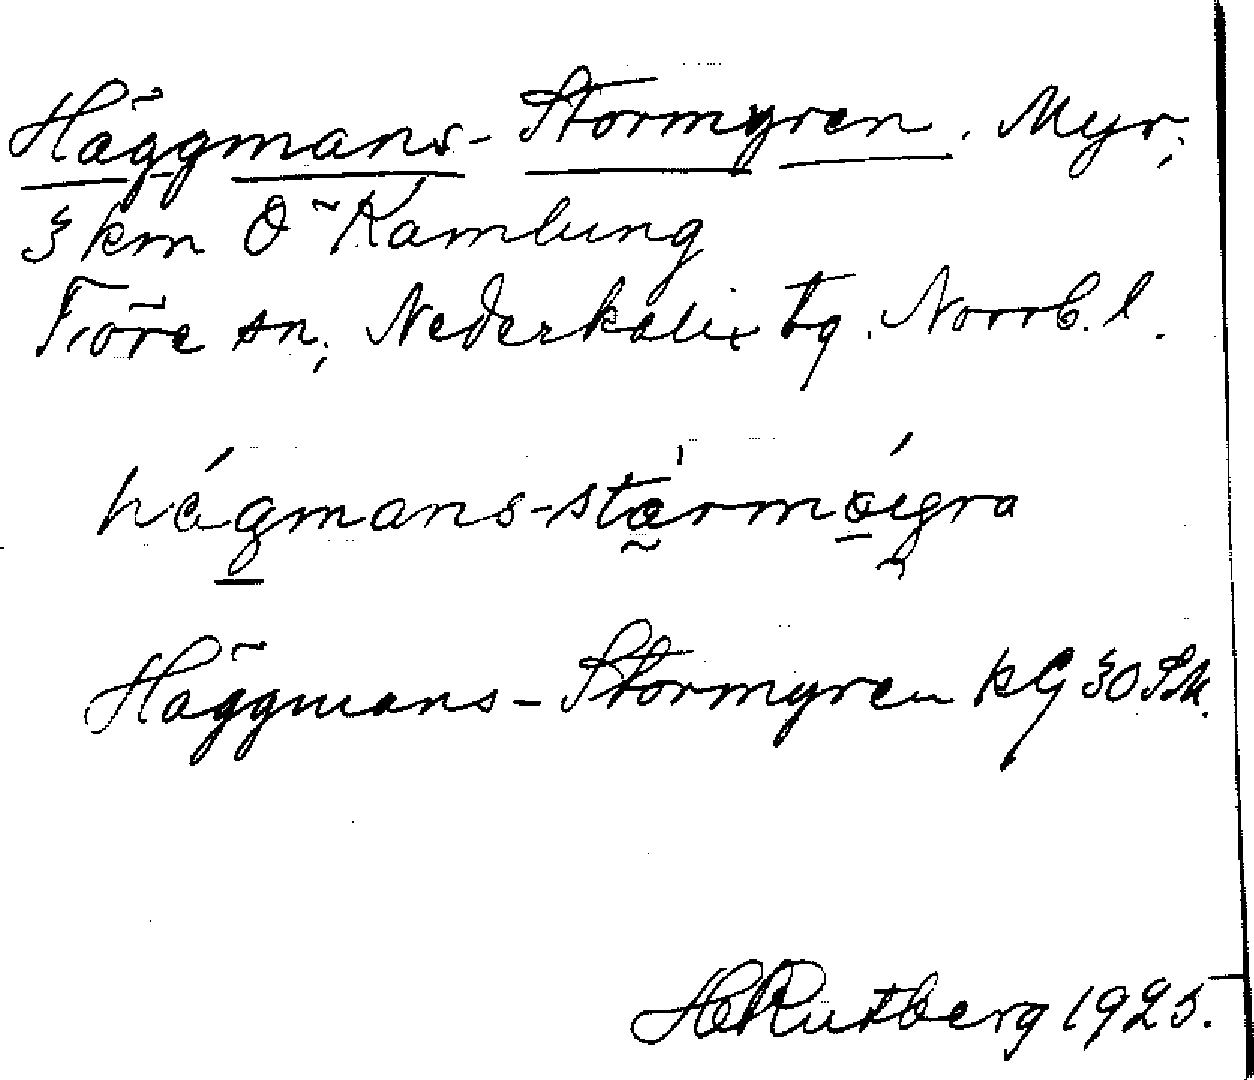 Häggmans-Stormyren. Myr;
3 km Ö Kamlung
Töre sn; Nederkalix tg. Norrb. l.
hågmans-stårmøıgra
Häggmans-Stormyren kG 30 SM.
HRutberg 1925.